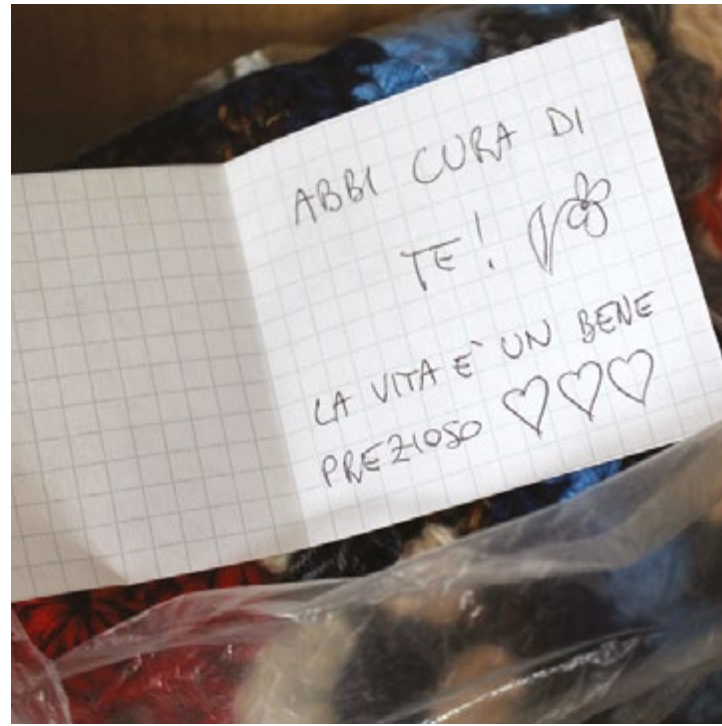 ABBI CURA DI
TE!
LA VITA E' UN BENE
PREZIOSO